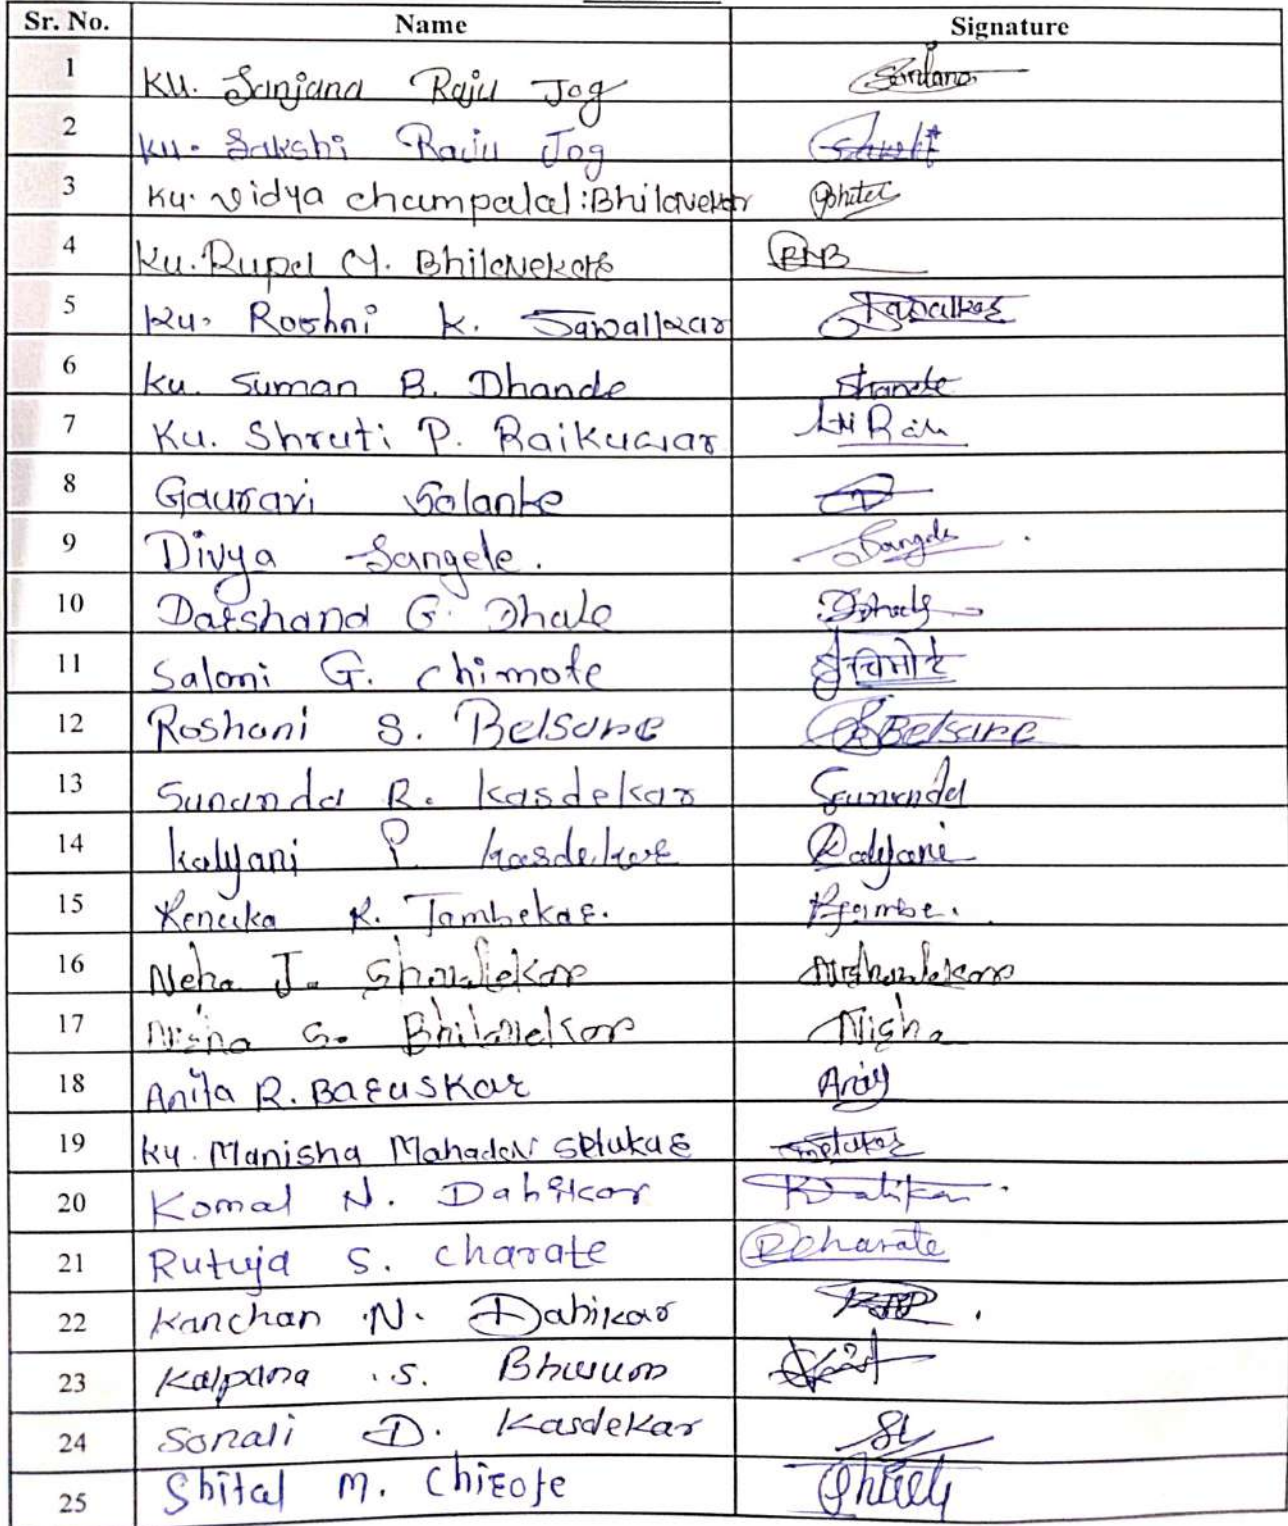 Sr. No. Name Signature
1 Ku. Sanjana Raju Jog Sanjana
2 Ku. Sakshi Raju Jog
3 Ku. Vidya champalal Bhilavekar
4 Ku. Rupal M. Bhilavekar RMB
5 Ku. Roshni K. Sawalkar Sawalkar
6 Ku. Suman B. Dhande Dhande
7 Ku. Shruti P. Raikuwar
8 Gauravi Solanke
9 Divya Sangele. Sangele
10 Darshana G. Dhale
11 Saloni G. Chimote चिमोटे
12 Roshani S. Belsare Belsare
13 Sunanda R. Kasdekar Sunanda
14 Kalyani P. Kasdekar Kalyani
15 Renuka R. Tambekar.
16 Neha J. Shovlekar
17 Nisha G. Bhilavekar Nisha
18 Anita R. Baruskar
19 Ku. Manisha Mahadev Selukar
20 Komal N. Dahikar
21 Rutuja S. Charate RCharate
22 Kanchan N. Dahikar
23 Kalpana S.
24 Sonali D. Kasdekar
25 Shital M. Chirote